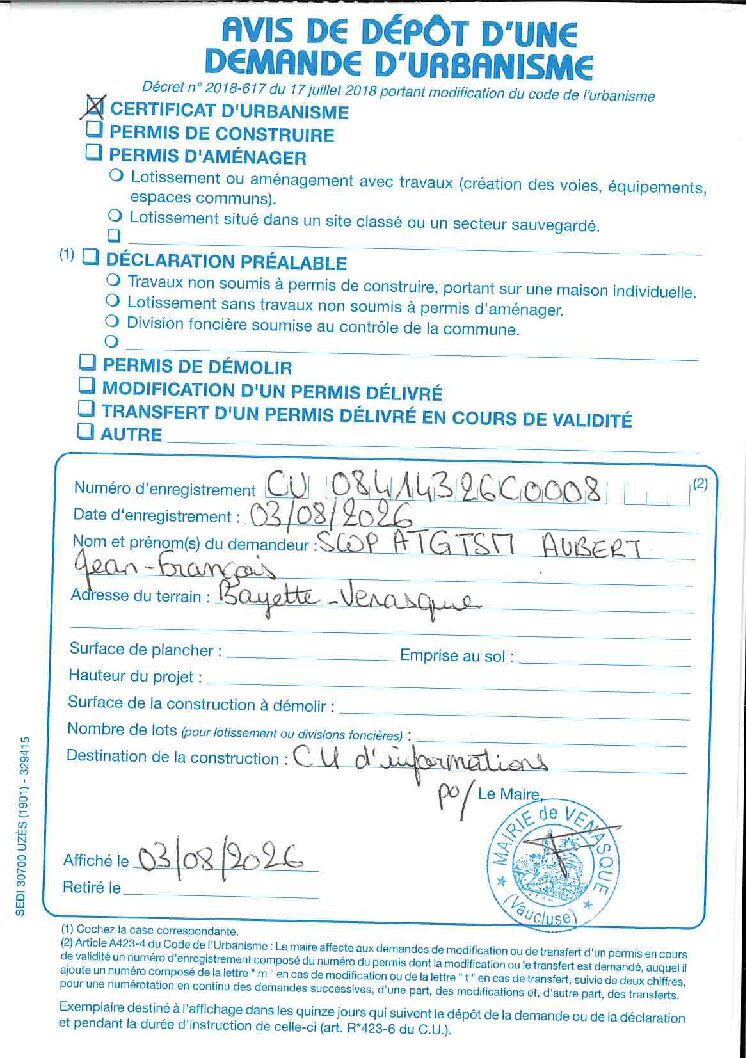 AVIS DE DÉPÔT D'UNE
DEMANDE D'URBANISME
Décret n° 2018-617 du 17 juillet 2018 portant modification du code de l'urbanisme
CERTIFICAT D'URBANISME
PERMIS DE CONSTRUIRE
PERMIS D'AMÉNAGER
Lotissement ou aménagement avec travaux (création des voies, équipements,
espaces communs).
Lotissement situé dans un site classé ou un secteur sauvegardé.
(1) DÉCLARATION PRÉALABLE
Travaux non soumis à permis de construire, portant sur une maison individuelle.
Lotissement sans travaux non soumis à permis d'aménager.
Division foncière soumise au contrôle de la commune.
PERMIS DE DÉMOLIR
MODIFICATION D'UN PERMIS DÉLIVRÉ
TRANSFERT D'UN PERMIS DÉLIVRÉ EN COURS DE VALIDITÉ
AUTRE
Numéro d'enregistrement CU 08414326C0008 (2)
Date d'enregistrement : 03/08/2026
Nom et prénom(s) du demandeur : SCOP ATGTSM AUBERT
Jean-François
Adresse du terrain : Bayette-Venasque
Surface de plancher : Emprise au sol :
Hauteur du projet :
Surface de la construction à démolir :
Nombre de lots (pour lotissement ou divisions foncières) :
Destination de la construction : CU d'informations
po/ Le Maire,
MAIRIE de VENASQUE
(Vaucluse)
Affiché le 03/08/2026
Retiré le
SEDI 30700 UZÈS (1901) - 329415
(1) Cochez la case correspondante.
(2) Article A423-4 du Code de l'Urbanisme : Le maire affecte aux demandes de modification ou de transfert d'un permis en cours
de validité un numéro d'enregistrement composé du numéro du permis dont la modification ou le transfert est demandé, auquel il
ajoute un numéro composé de la lettre " m " en cas de modification ou de la lettre " t " en cas de transfert, suivie de deux chiffres,
pour une numérotation en continu des demandes successives, d'une part, des modifications et, d'autre part, des transferts.
Exemplaire destiné à l'affichage dans les quinze jours qui suivent le dépôt de la demande ou de la déclaration
et pendant la durée d'instruction de celle-ci (art. R*423-6 du C.U.).